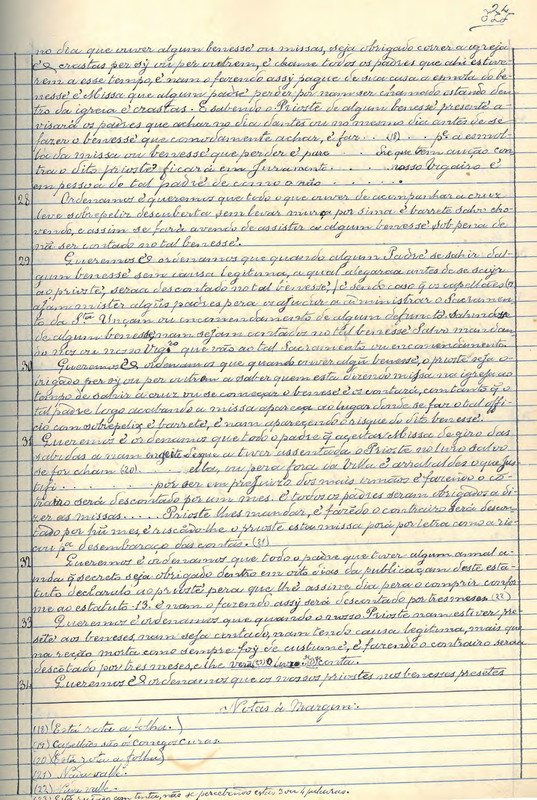 24
no dia que ouver algum benesse ou missas, seja obrigado correr a igreja
é crastas per sy ou per outrem, é chame todos os padres que ahi estive-
rem a esse tempo, é nam o fazendo assy pague de sua casa a esmola do be-
nesse é Missa que algum padre perder por nam ser chamado estando den-
tro da igreia é crastas. E sabendo o Prioste de algum benesse presente a-
visará os padres que achar no dia dantes ou no mesmo dia antes de se
fazer o benesse que comodamente achar, é far . . . (18) . . pª a esmo-
la da missa ou benesse que perder é para . . . Se que tem aução con-
tra o dito prioste ficará em Juramento . . . . . nosso Vigairo é
em pessoa de tal padre de como o não . . . . . .
28 Ordenamos é queremos que todo o que ouver de acompanhar a cruz
leve sobrepeliz descuberta sem levar mursa por sima é barrete salvo cho-
vendo, e assim se fará avendo de assistir a algum benesse sob pena de
não ser contado no tal benesse.
29 Queremos é ordenamos que quando algum Padre se sahir dal-
gum benesse sem causa legitima, a qual alegaraa antes de se sair
ao prioste, seraa descontado no tal benesse, é sendo caso q̃ os capellães (19)
ajam mister algũs padres pera os ajudar a administrar o Sacramen-
to da Stª Unçam ou incomendamento de algum defuncto, sahindose
de algum benesse, nam sejam contados no tal benesse Salvo mandan-
do nos ou nosso Vigrº que vão ao tal Sacramento ou encomendamento
30 Queremos é ordenamos que quando ouver algũ benesse, o prioste seja o-
brigado per sy ou per outrem a saber quem esta dizendo missa na igreja ao
tempo de sahir a cruz ou se começar o benesse é os contará, com tanto q̃ o
tal padre logo acabando a missa apareça ao lugar donde se faz o tal offi-
cio com sobrepeliz é barrete, é nam aparecendo o risque do dito benesse.
31 Queremos é ordenamos que todo o padre q̃ aceitar Missa de giro das
sabidas a nam engeite desque a tiver assentada o Prioste no livro salvo
se for cham (20) . . . . ella, ou pera fora da Villa é arrabaldes o qual jus-
tifi . . . . . por ser em prejuizo dos mais irmãos é fazendo o co-
trairo será descontado por um mes. E todos os padres seram obrigados a di-
zer as missas . . . . Prioste lhes mandar, é fazẽdo o contrairo será descon-
tado por hũ mes, é riscão-lhe o prioste esta missa porá por letra como a ris-
cou pª desembaraço das contas. (21)
32 Queremos é ordenamos que todo o padre que tiver algum annal a-
inda q̃ secreto seja obrigado dentro em oito dias da publicaçam deste esta-
tuto declaralo ao prioste pera que lhe assine dia pera o comprir confor-
me ao estatuto 13. é nam o fazendo assy será descontado por tres meses (22)
33 Queremos é ordenamos que quando o nosso Prioste nam estiver pre-
sẽte aos beneses, nam seja contado, nam tendo causa legitima, mais que
na reção morta como sempre foy de custume, é fazendo o contrairo seraa
descõtado por tres meses, e lhe conta.
34 Queremos é ordenamos que os nossos priostes nos benesses presẽtes
Notas à Margem:
(18) (Está rota a folha.)
(19) Capellães são os coneços curas.
(20) Está rota a folha)
(21) Num valle.
(22) Num valle.
com tinta, não se percebendo estas 3 ou 4 palavras.